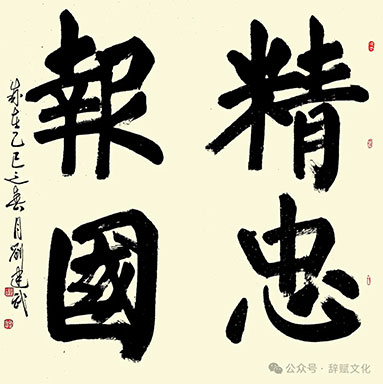 精忠
報國
歲在乙巳之春月劉建武
公众号·辞赋文化